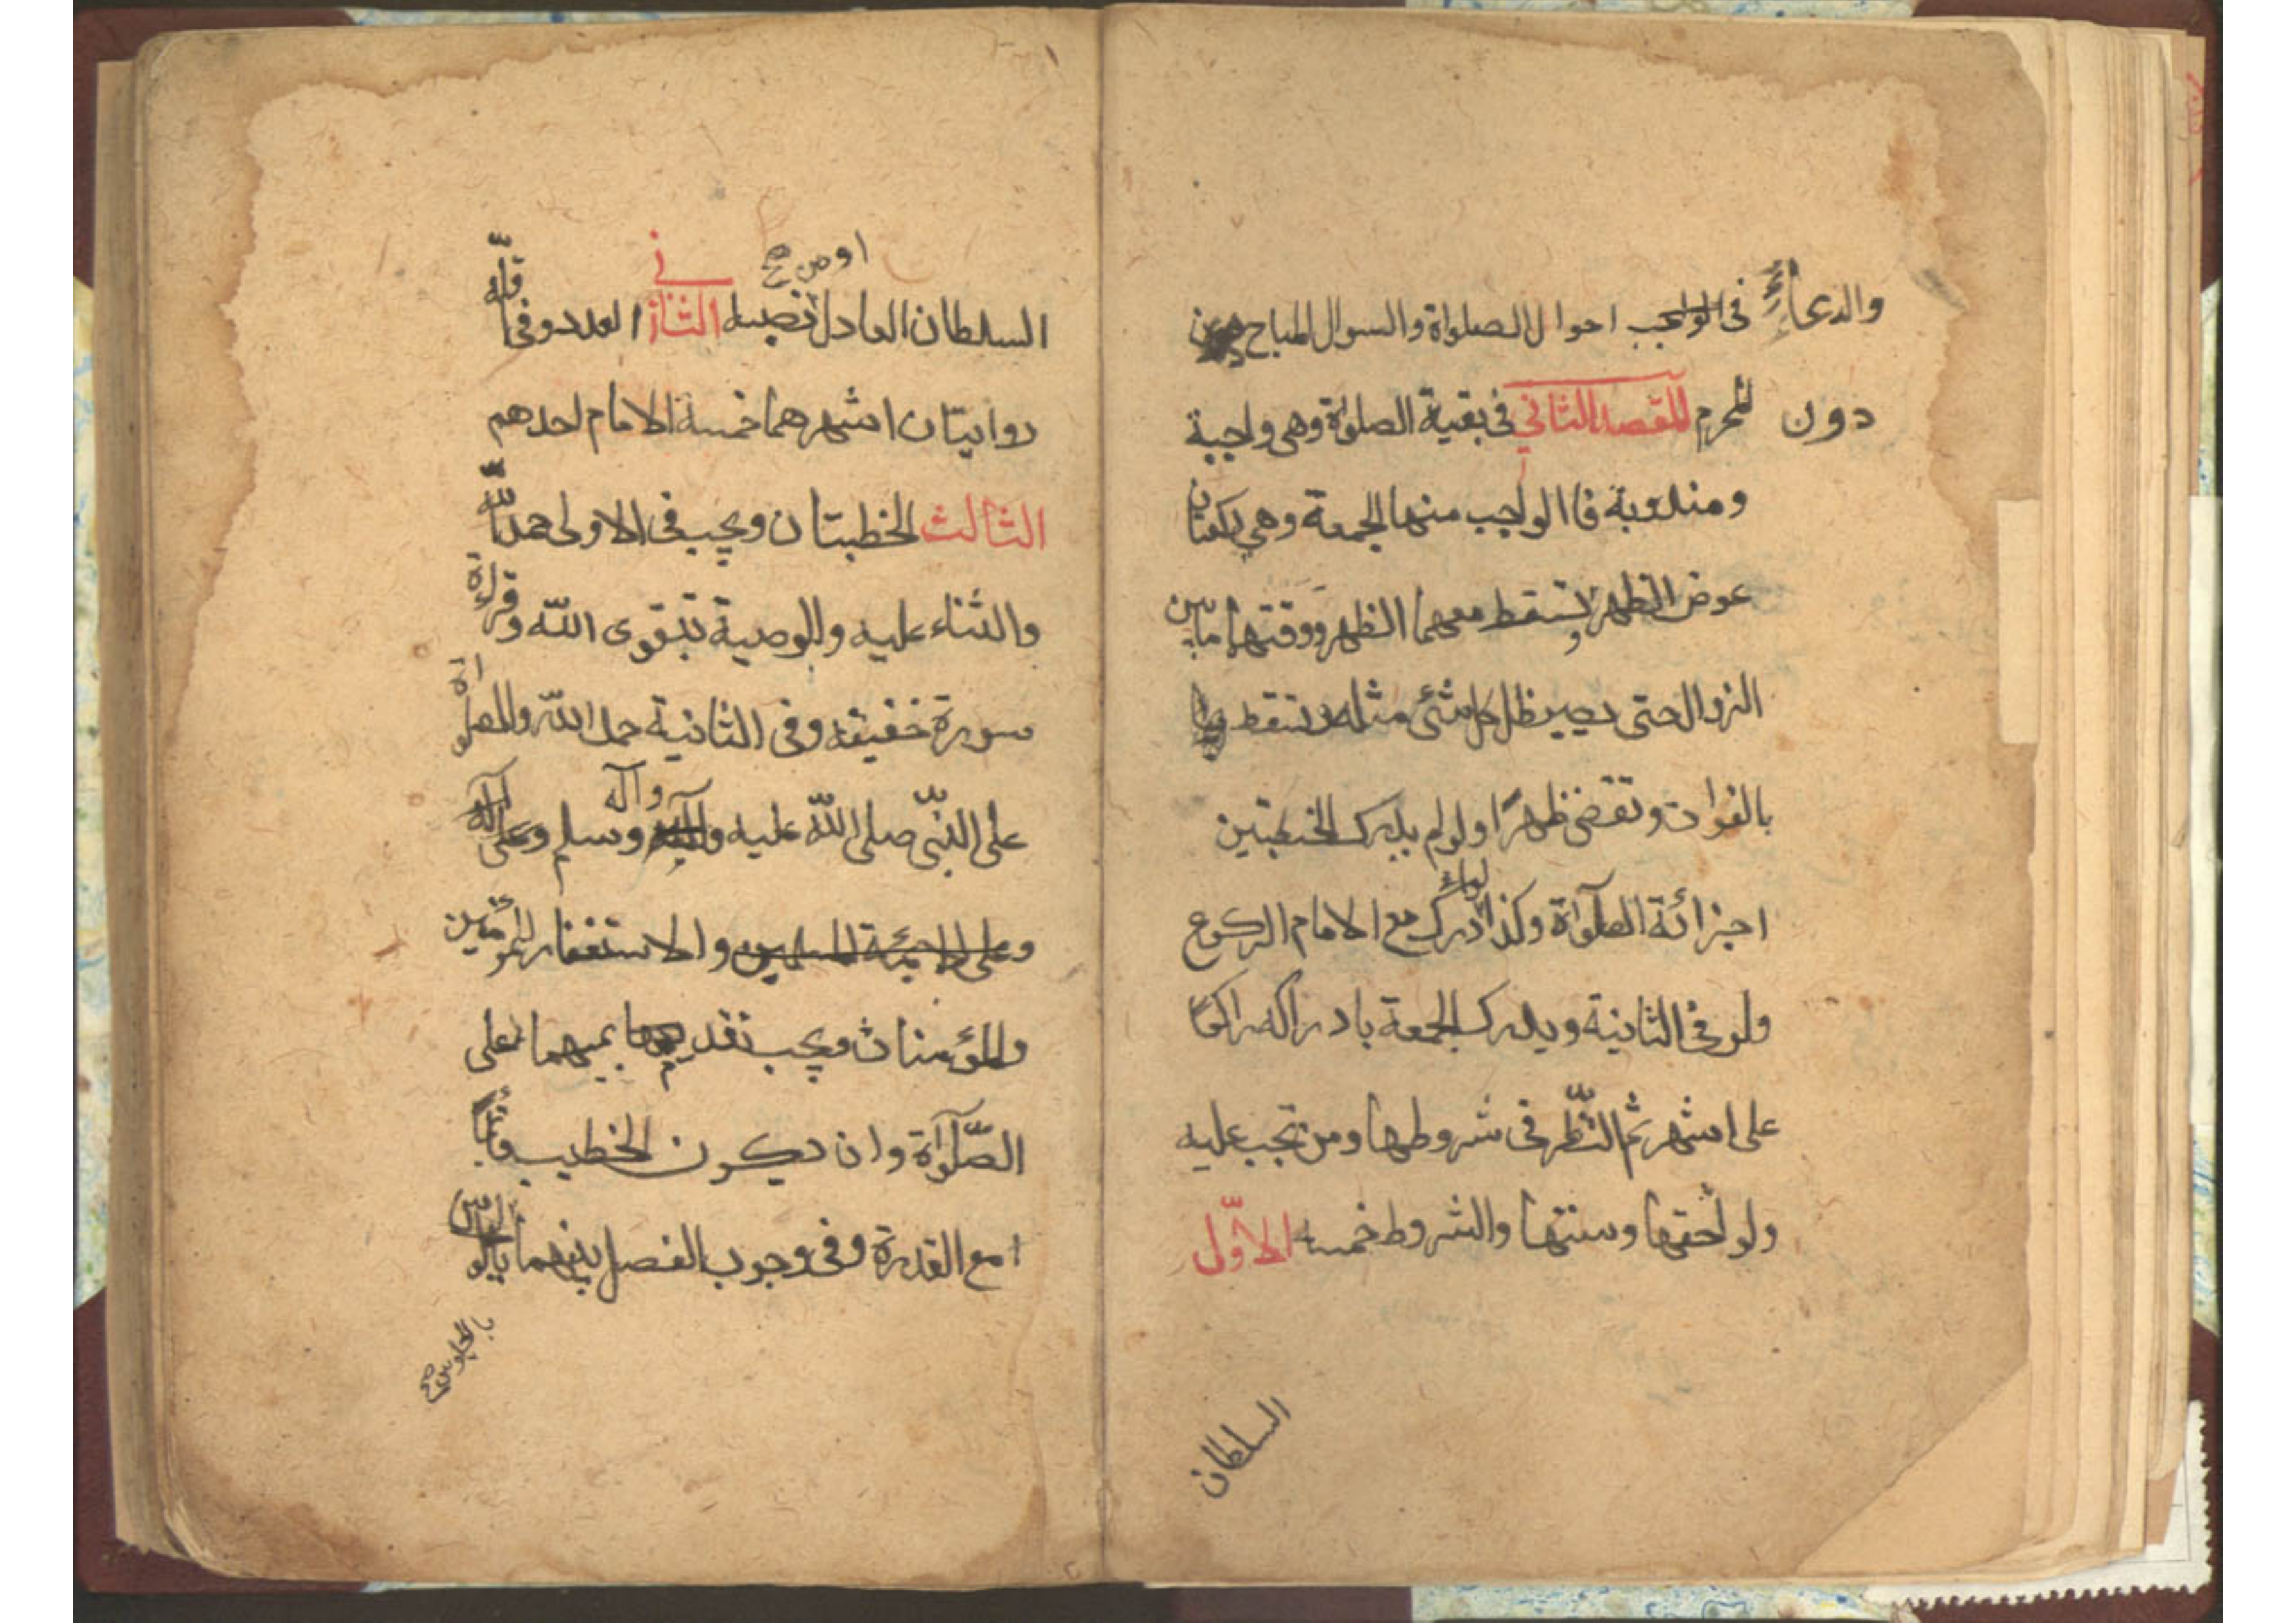 والدعاء فى احوال الصلواة والسوال المباح
دون المحرم المقصد الثاني فى بقية الصلواة وهى واجبة
ومندوبة فا الواجب منها الجمعة وهي ركعتان
عوض الظهر وتسقط معهما الظهر ووقتها مابين
الزوال حتى يصير ظل كل شئ مثله وتسقط
بالفوات وتقضى ظهرًا ولو لم يدرك الخطبتين
اجزائة الصلواة وكذا ادرك مع الامام الركوع
ولو فى الثانية ويدرك الجمعة بادراكه راكعًا
على اشهر ثم النّظر فى شروطها ومن تجب عليه
ولواحقها وسننها والشروط خمسه الاوّل
السلطان
او من صح
السلطان العادل نصبه الثاني العدد وفى اقلّه
روايتان اشهرهما خمسة الامام احدهم
الثالث الخطبتان ويجب فى الاولى حمد اللّه
والثناء عليه والوصية بتقوى اللّه وقراءة
سورة خفيفه وفى الثانية حمد اللّه والصلواة
على النّبى صلى اللّه عليه وآله وسلم وعلى
وعلى ائمة المسلمين والاستغفار للمؤمنين
والمؤمنات ويجب تقديمهما على
الصّلواة وان يكون الخطيب قائمًا
مع القدرة وفى وجوب الفصل بينهما
بالجلوس صح